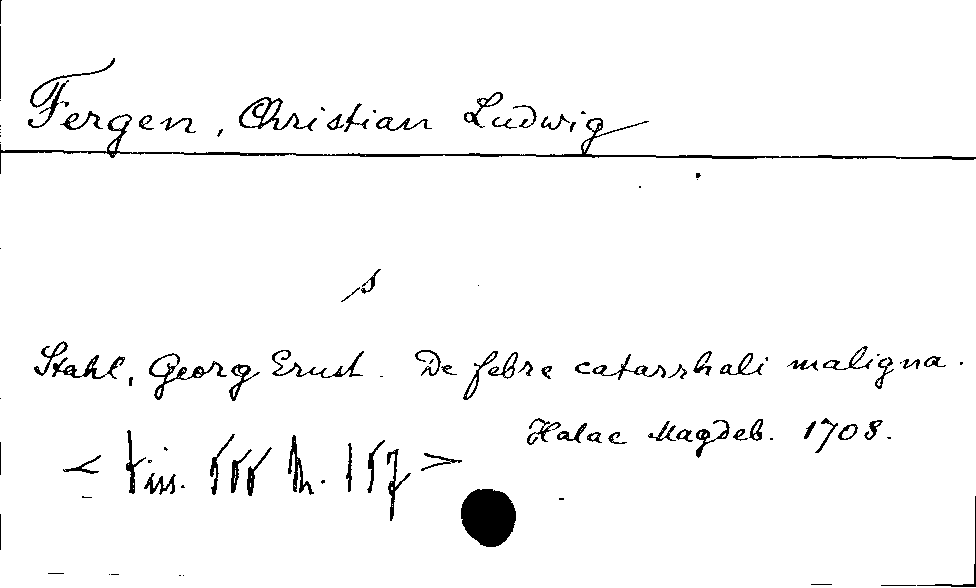 Fergen, Christian Ludwig
s
Stahl, Georg Ernst. De febre catarrhali maligna.
Halae Magdeb. 1708.
< Diss. 666 N. 157 >